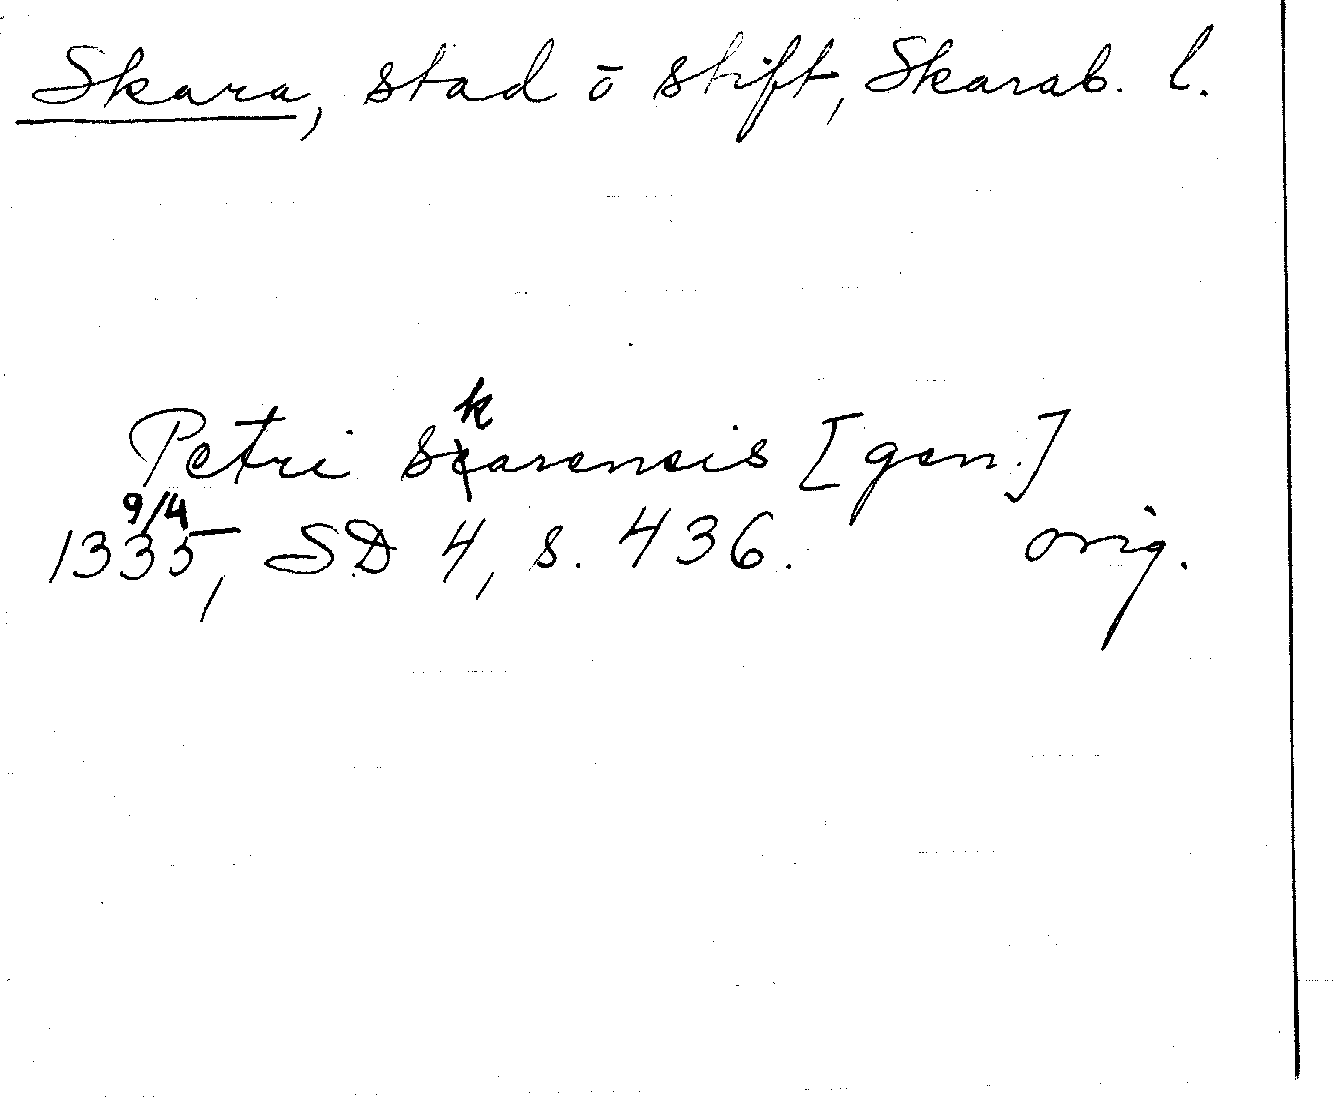 Skara, stad ō stift, Skarab. l.
Petri skarensis [gen.]
1335 9/4, SD 4, s. 436. orig.